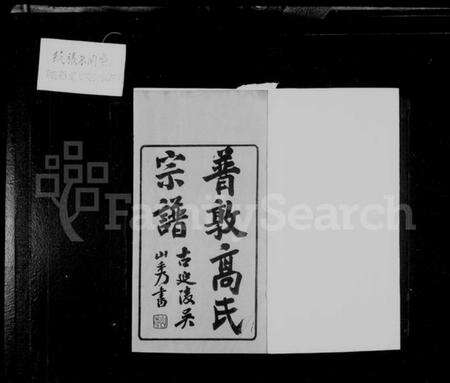 普敦高氏
宗譜
古延陵吳
山秀書
FamilySearch